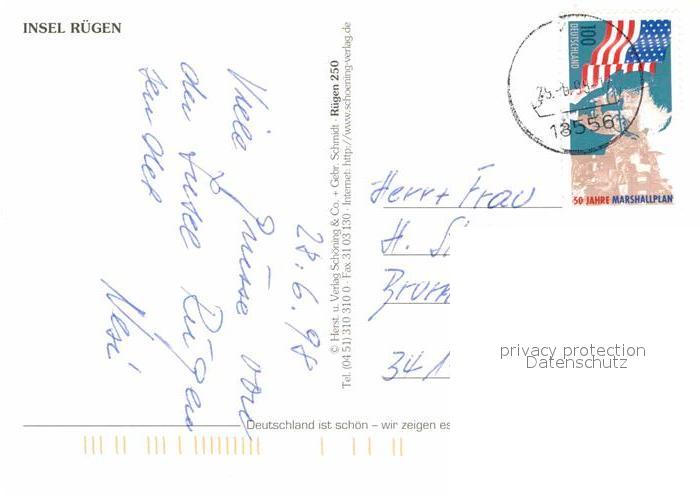 INSEL RÜGEN
28.6.98
Viele Grüsse von
der Insel Rügen
sendet
© Herst. u. Verlag Schöning & Co. + Gebr. Schmidt · Rügen 250
Tel. (04 51) 310 310 0 · Fax 31 03 130 · Internet: http://www.schoening-verlag.de
Herr + Frau
H.
34
Deutschland ist schön – wir zeigen es
100
DEUTSCHLAND
50 JAHRE MARSHALLPLAN
18556
privacy protection
Datenschutz